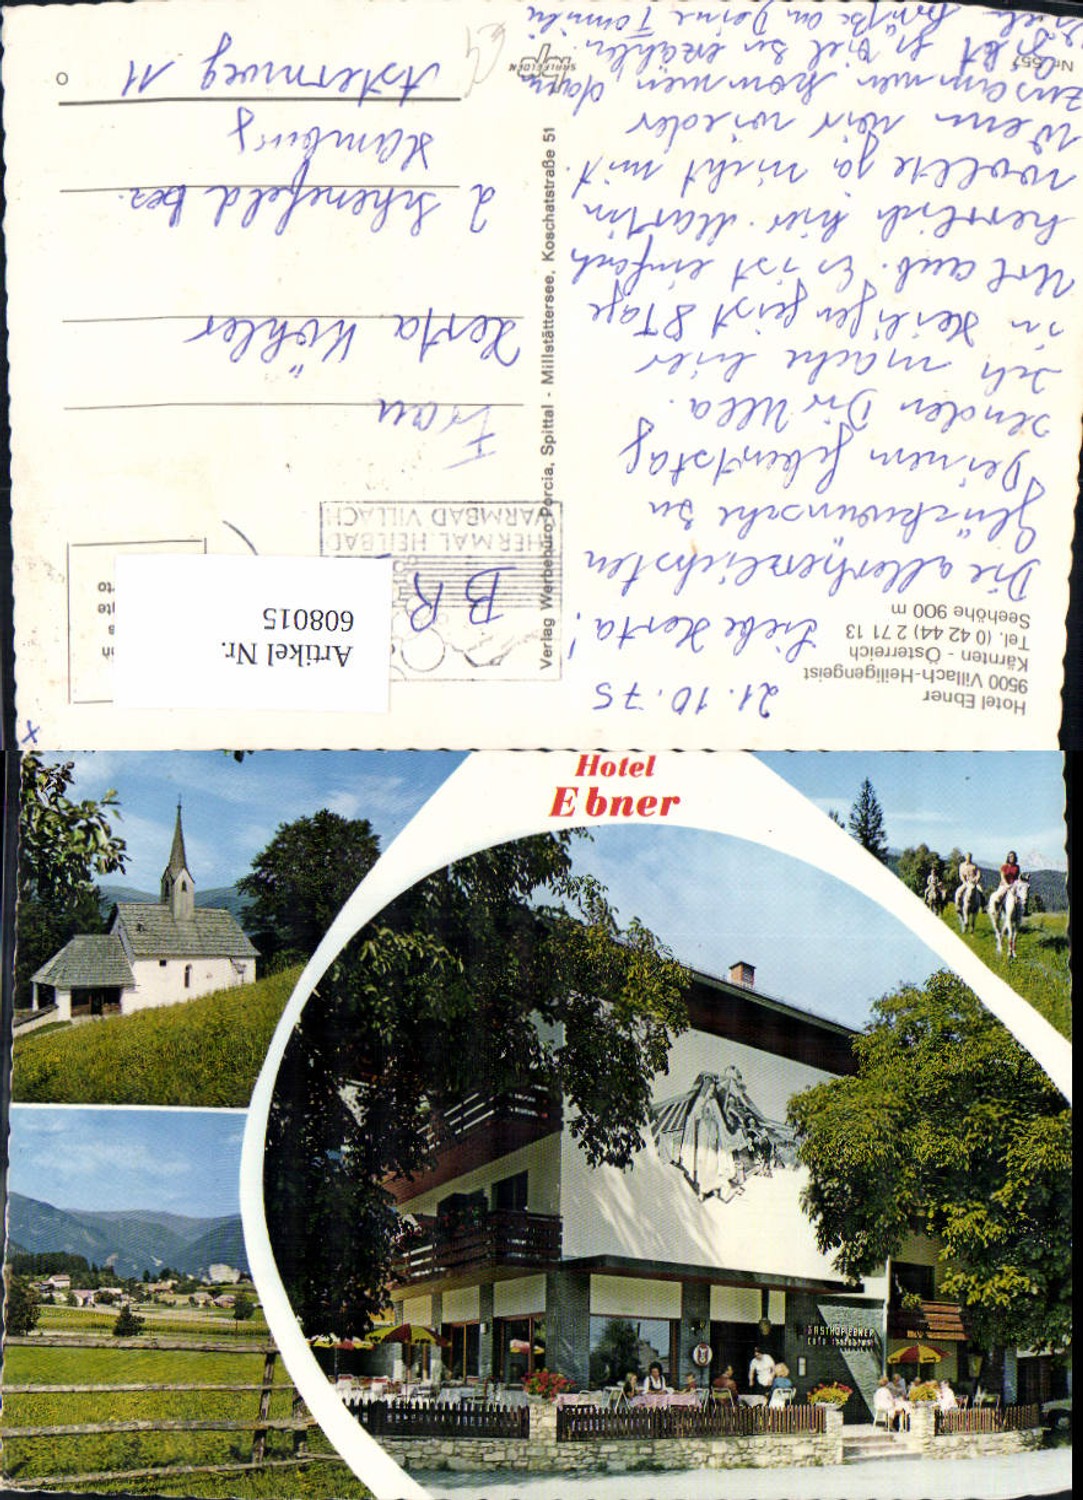 Hotel Ebner
9500 Villach-Heiligengeist
Kärnten - Österreich
Tel. (0 42 44) 2 71 13
Seehöhe 900 m
21.10.75
Liebe Herta!
Die allerherzlichsten
Glückwünsche zu
Deinem Geburtstag
senden Dir Ulla.
Ich mache hier
in Heiligengeist 8 Tage
Urlaub. Es ist einfach
herrlich hier. Martin
wollte ja nicht mit.
Wenn wir wieder
zusammen kommen dann
gibt es viel zu erzählen.
Viele Grüße an Deine Familie
Nr. 557
SAALFELDEN
Verlag Werbebüro Porcia, Spittal - Millstättersee, Koschatstraße 51
THERMAL-HEILBAD
WARMBAD VILLACH
BR
Artikel Nr.
608015
Frau
Herta Köhler
2 Schenefeld bez.
Hamburg
Asternweg 11
x
Hotel
Ebner
GASTHOF EBNER